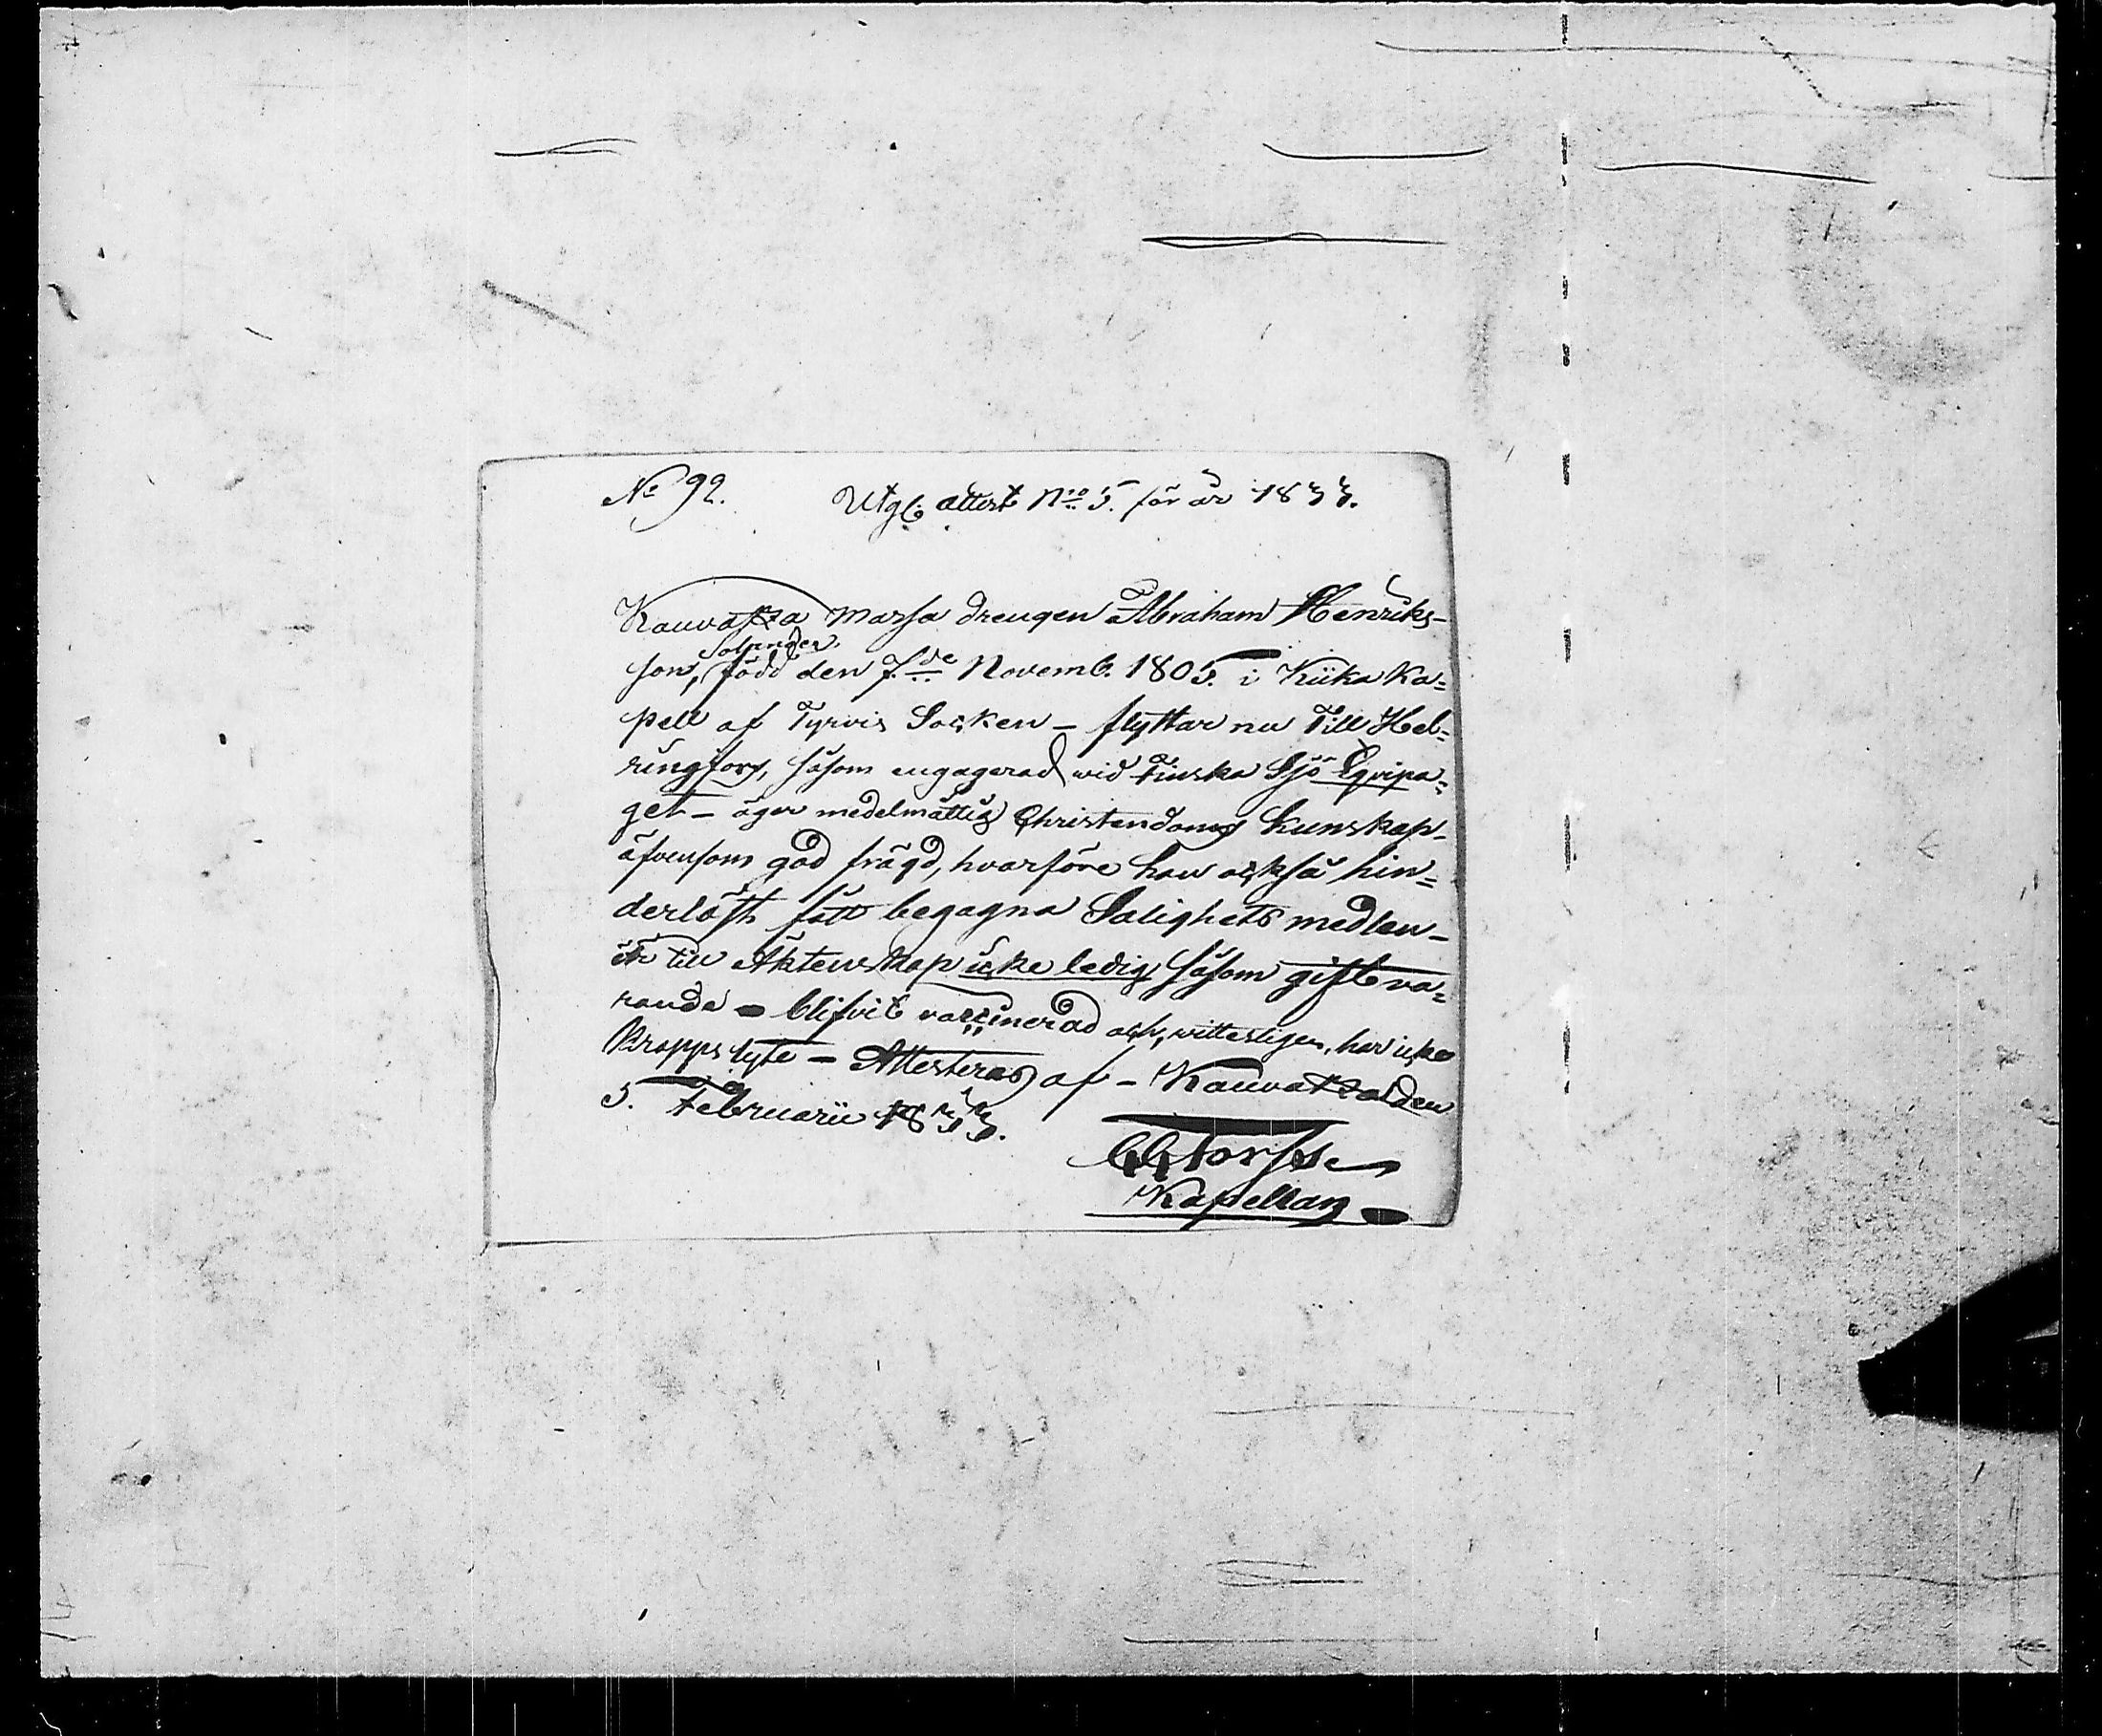 No 92. Utgf. attest No 5. för år 1833.
Kauvatza Massa drengen Abraham Henriks-
Solander
son, född den 7.de Novemb. 1805. i Kiika Ka=
pell af Tyrvis Socken – flyttar nu Till Hel=
singfors, såsom engagerad wid Finska Sjö Eqvipa=
get – äger medelmåttig Christendoms Kunskap-
äfvensom god frägd, hvarföre han också hin=
derlöst fått begagna Salighets medlen –
är till Äktenskap icke ledig såsom gift va=
rande – blifvit vaccinerad och, witterligen, har icke
Kroppslyte – Attesteras af – Kauvatza den
5. Februarii 1833.
Kapellan